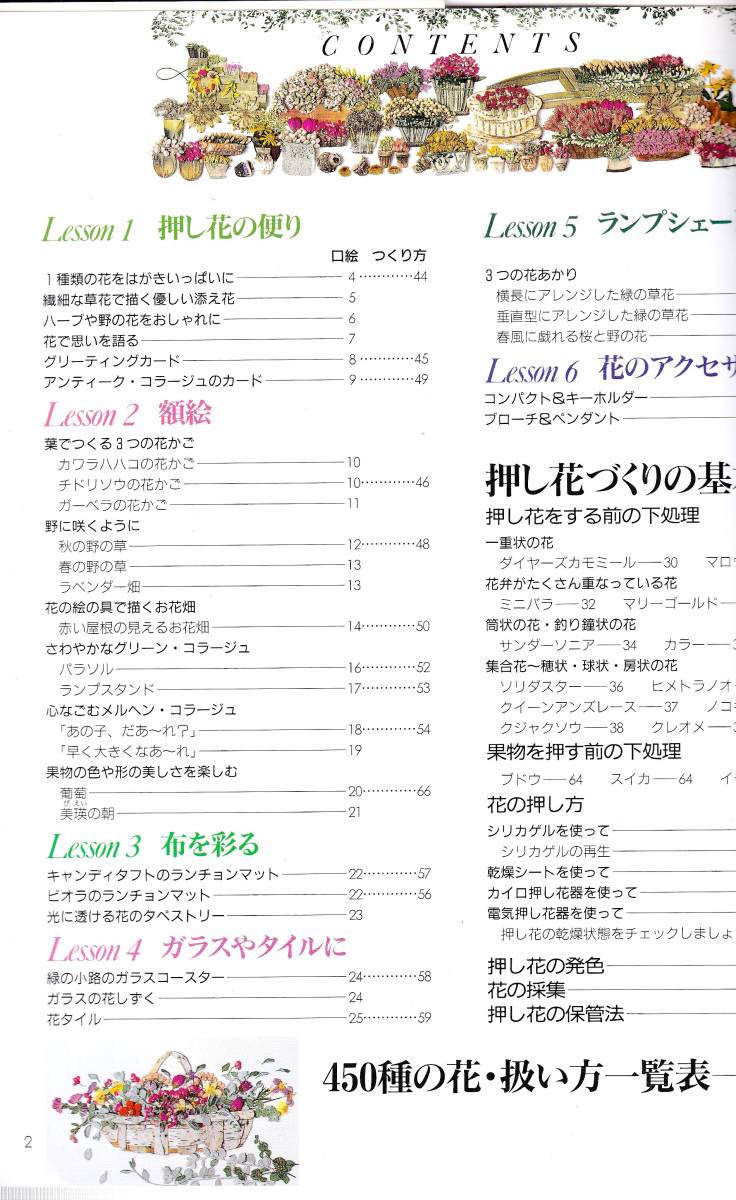 CONTENTS
Lesson 1 押し花の便り
口絵 つくり方
1種類の花をはがきいっぱいに 4 44
繊細な草花で描く優しい添え花 5
ハーブや野の花をおしゃれに 6
花で思いを語る 7
グリーティングカード 8 45
アンティーク・コラージュのカード 9 49
Lesson 2 額絵
葉でつくる3つの花かご
カワラハハコの花かご 10
チドリソウの花かご 10 46
ガーベラの花かご 11
野に咲くように
秋の野の草 12 48
春の野の草 13
ラベンダー畑 13
花の絵の具で描くお花畑
赤い屋根の見えるお花畑 14 50
さわやかなグリーン・コラージュ
パラソル 16 52
ランプスタンド 17 53
心なごむメルヘン・コラージュ
「あの子、だあ〜れ?」 18 54
「早く大きくなあ〜れ」 19
果物の色や形の美しさを楽しむ
葡萄 20 66
びえい
美瑛の朝 21
Lesson 3 布を彩る
キャンディタフトのランチョンマット 22 57
ビオラのランチョンマット 22 56
光に透ける花のタペストリー 23
Lesson 4 ガラスやタイルに
緑の小路のガラスコースター 24 58
ガラスの花しずく 24
花タイル 25 59
Lesson 5 ランプシェー
3つの花あかり
横長にアレンジした緑の草花
垂直型にアレンジした緑の草花
春風に戯れる桜と野の花
Lesson 6 花のアクセサ
コンパクト&キーホルダー
ブローチ&ペンダント
押し花づくりの基
押し花をする前の下処理
一重状の花
ダイヤーズカモミール—30 マロ
花弁がたくさん重なっている花
ミニバラ—32 マリーゴールド
筒状の花・釣り鐘状の花
サンダーソニア—34 カラー
集合花〜穂状・球状・房状の花
ソリダスター—36 ヒメトラノオ
クイーンアンズレース—37 ノコ
クジャクソウ—38 クレオメ
果物を押す前の下処理
ブドウ—64 スイカ—64 イ
花の押し方
シリカゲルを使って
シリカゲルの再生
乾燥シートを使って
カイロ押し花器を使って
電気押し花器を使って
押し花の乾燥状態をチェックしましょ
押し花の発色
花の採集
押し花の保管法
450種の花・扱い方一覧表
2